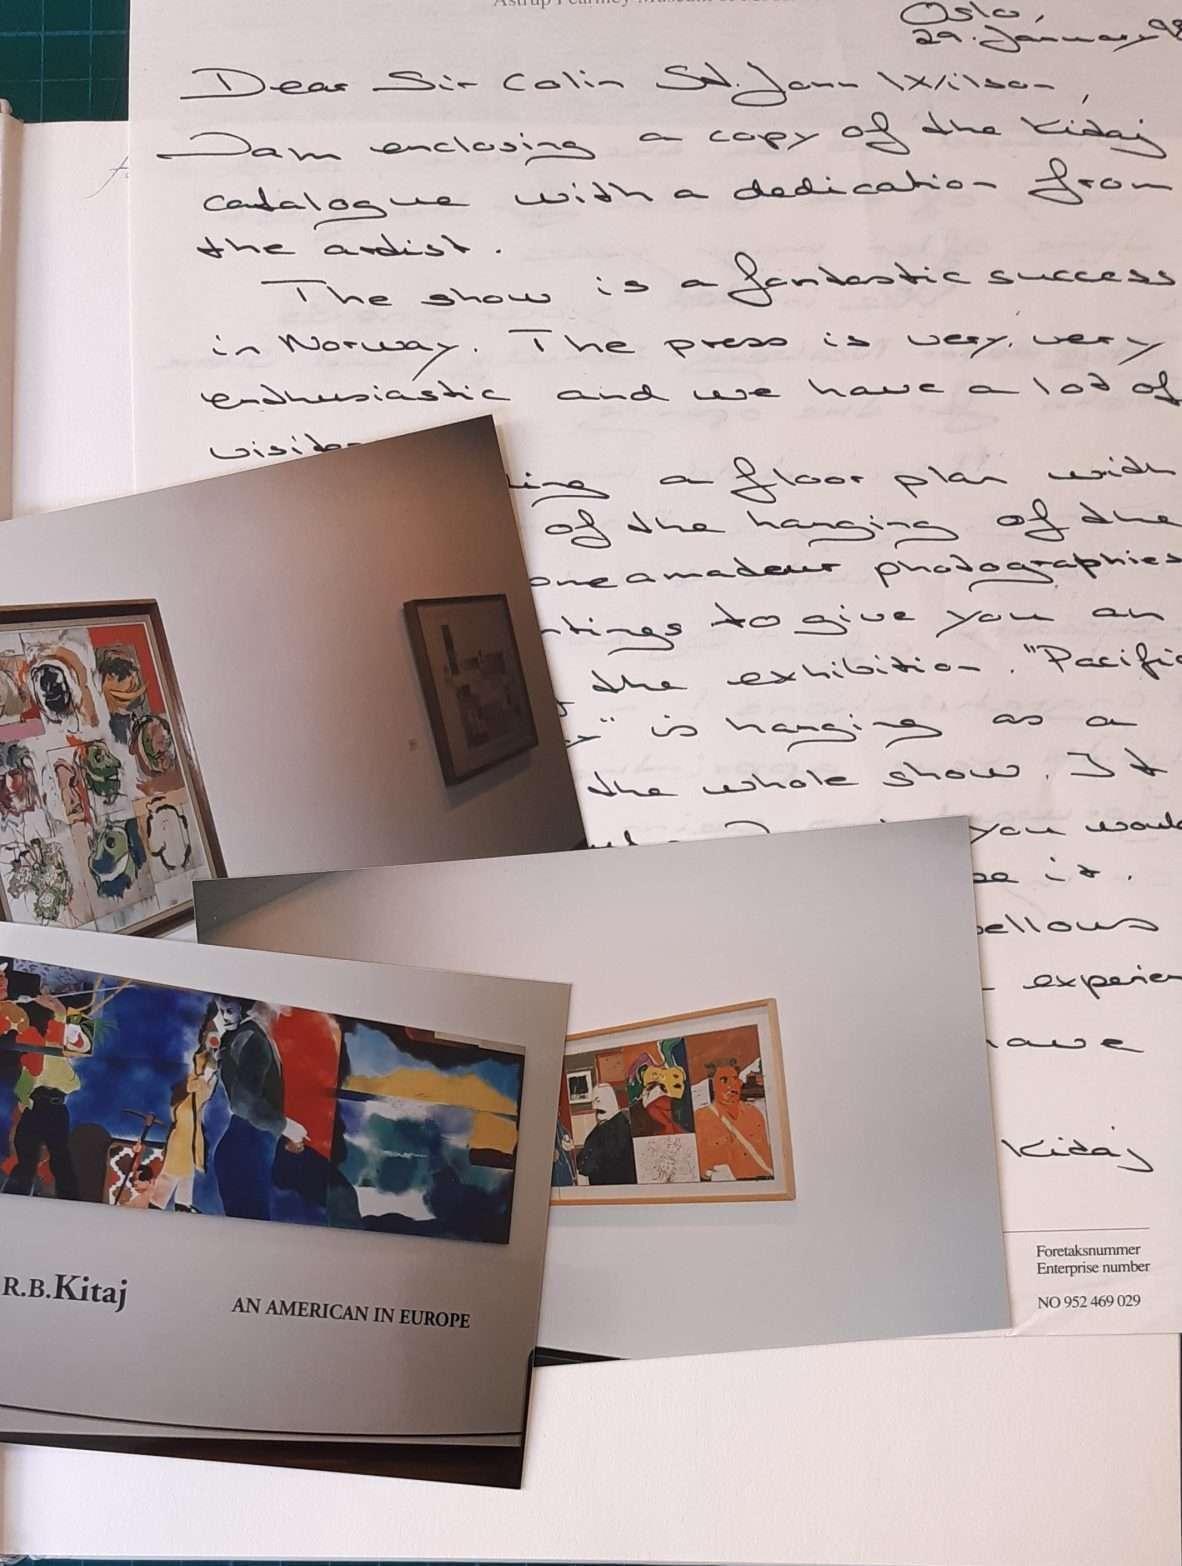 Astrup Fearnley Museum
Oslo,
29. January 98
Dear Sir Colin St. John Wilson,
I am enclosing a copy of the Kitaj
catalogue with a dedication from
the artist.
The show is a fantastic success
in Norway. The press is very, very
enthusiastic and we have a lot of
ing a floor plan with
of the hanging of the
one amateur photographies
ntings to give you an
the exhibition. "Pacific
" is hanging as a
the whole show. It
you would
it.
ellows
experien
have
Kitaj
R.B. Kitaj
AN AMERICAN IN EUROPE
Foretaksnummer
Enterprise number
NO 952 469 029